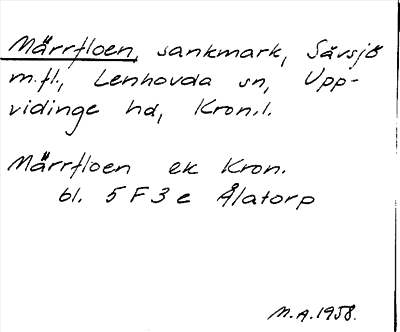 Märrfloen, sankmark, Sävsjö
m.fl., Lenhovda sn, Upp-
vidinge hd, Kron.l.
Märrfloen ek Kron.
bl. 5 F 3 e Ålatorp
M.A. 1958.